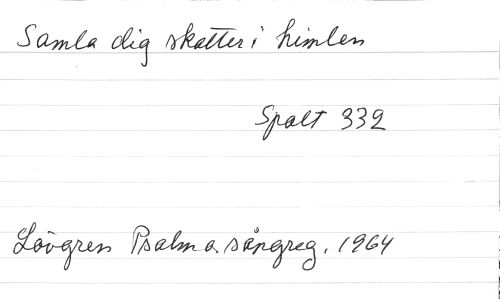 Samla dig skatter i himlen
Spalt 332
Lövgren Psalm o. sångreg. 1964